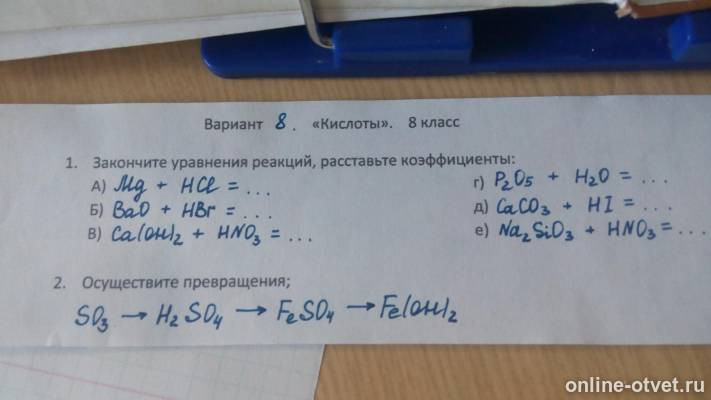 Вариант 8. «Кислоты». 8 класс
1. Закончите уравнения реакций, расставьте коэффициенты:
А) Mg + HCl = ...
Б) BaO + HBr = ...
В) Ca(OH)₂ + HNO₃ = ...
г) P₂O₅ + H₂O = ...
д) CaCO₃ + HI = ...
е) Na₂SiO₃ + HNO₃ = ...
2. Осуществите превращения;
SO₃ → H₂SO₄ → FeSO₄ → Fe(OH)₂
online-otvet.ru